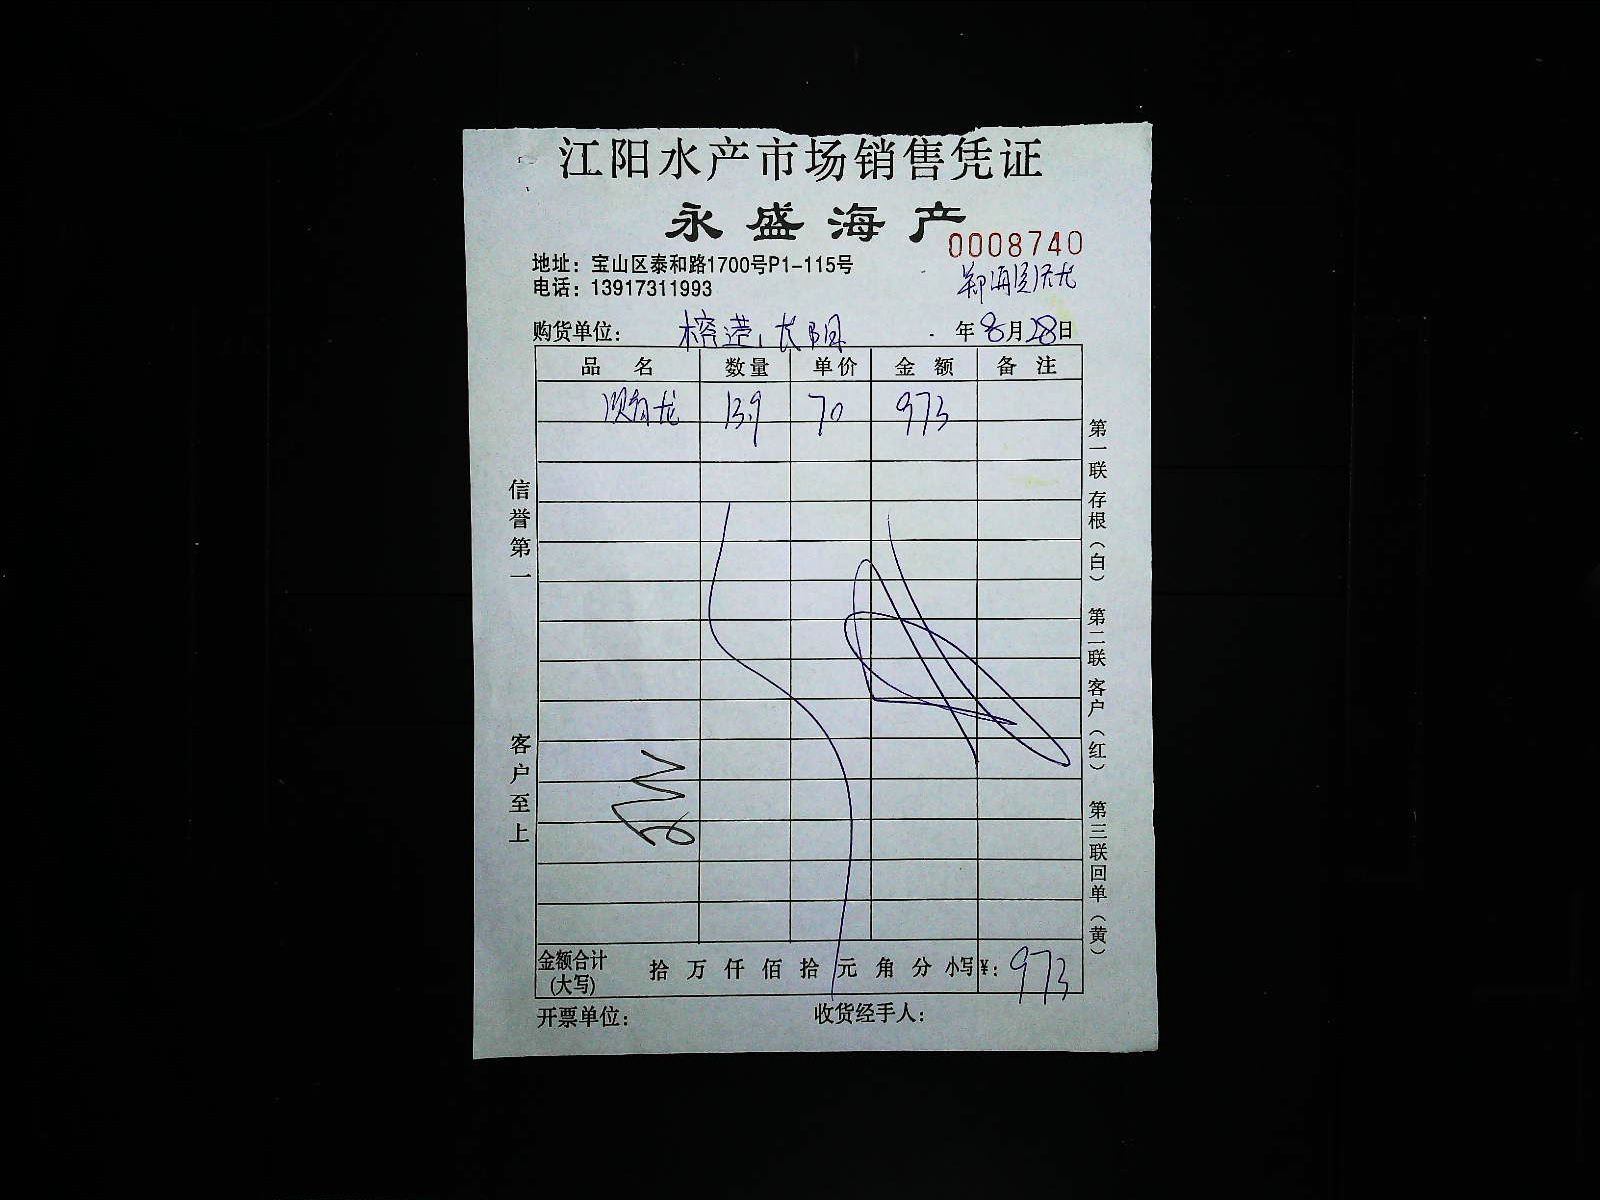 江阳水产市场销售凭证
永盛海产
0008740
地址：宝山区泰和路1700号P1-115号
电话：13917311993
购货单位： 榕港 长阳 年8月28日
品名 数量 单价 金额 备注
龙 13.9 70 973
信誉第一
客户至上
第一联存根（白） 第二联客户（红） 第三联回单（黄）
金额合计(大写) 拾 万 仟 佰 拾 元 角 分 小写¥：973
开票单位： 收货经手人：